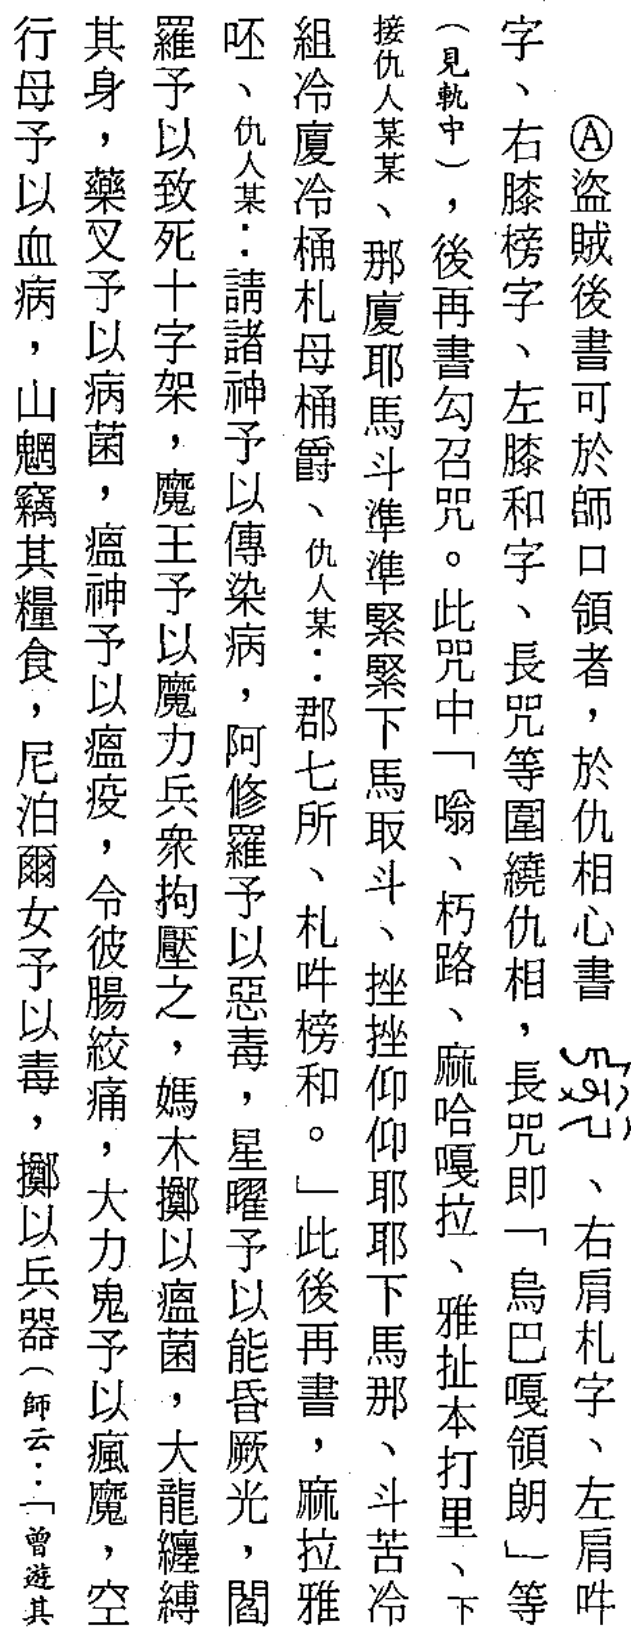 Ⓐ盜賊後書可於師口領者，於仇相心書、右肩札字、左肩吽
字、右膝榜字、左膝和字、長咒等圍繞仇相，長咒即「烏巴嘎領朗」等
（見軌中），後再書勾召咒。此咒中「嗡、朽路、麻哈嘎拉、雅扯本打里、下
接仇人某某、那廈耶馬斗準準緊緊下馬取斗、挫挫仰仰耶耶下馬那、斗苦冷
組冷廈冷桶札母桶爵、仇人某：郡七所、札吽榜和。」此後再書，麻拉雅
呸、仇人某：請諸神予以傳染病，阿修羅予以惡毒，星曜予以能昏厥光，閻
羅予以致死十字架，魔王予以魔力兵衆拘壓之，媽木擲以瘟菌，大龍纏縛
其身，藥叉予以病菌，瘟神予以瘟疫，令彼腸絞痛，大力鬼予以瘋魔，空
行母予以血病，山魍竊其糧食，尼泊爾女予以毒，擲以兵器（師云：「曾遊其